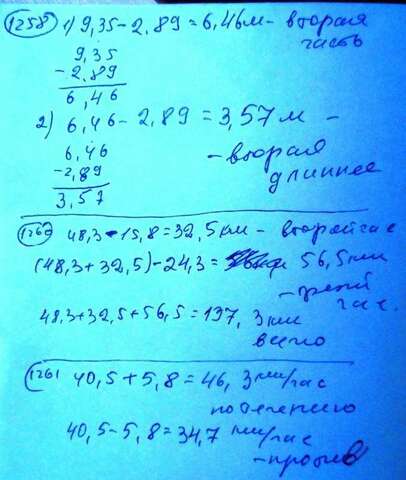 1258 1) 9,35 - 2,89 = 6,46 м - вторая
часть
9,35
- 2,89
6,46
2) 6,46 - 2,89 = 3,57 м -
- вторая
длиннее
6,46
- 2,89
3,57
1260 48,3 - 15,8 = 32,5 км - второй час
(48,3 + 32,5) - 24,3 = 56,5 км
- третий
час.
48,3 + 32,5 + 56,5 = 137,3 км
всего
1261 40,5 + 5,8 = 46,3 км/час
по течению
40,5 - 5,8 = 34,7 км/час
- против